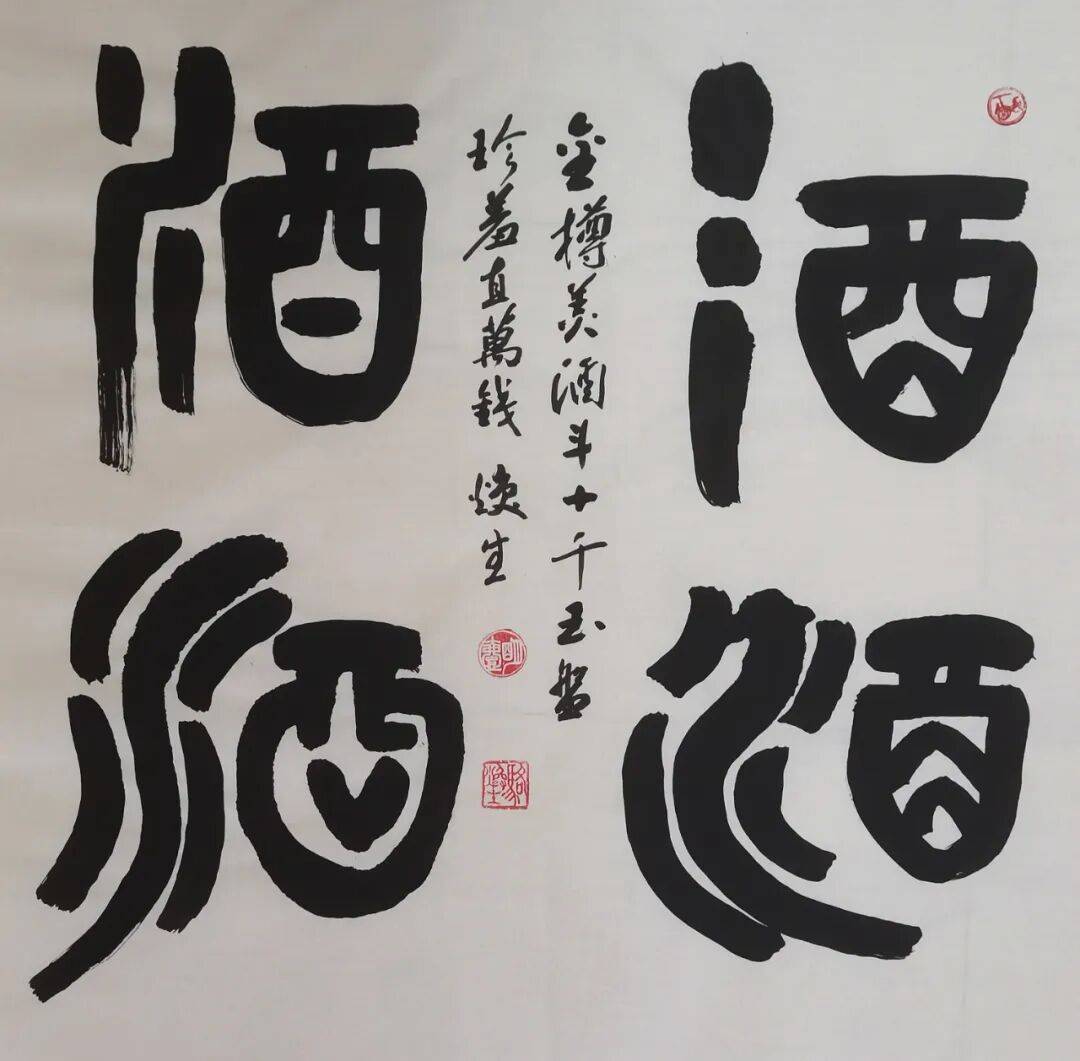 酒
酒
金樽美酒斗十千玉盤
珍羞直萬錢 煥生
酒
酒